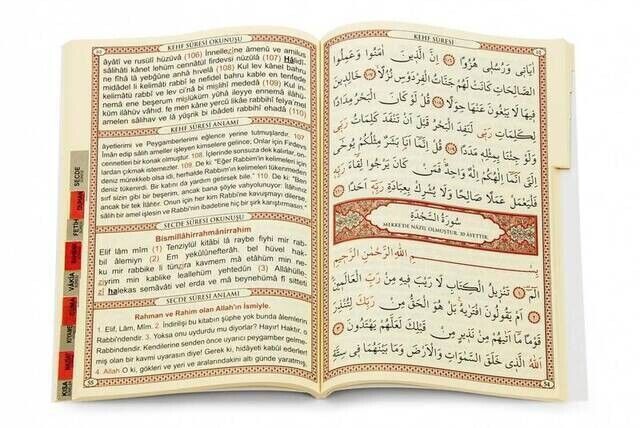 KEHF SÛRESİ OKUNUŞU
âyâtî ve rusulî hüzüvâ (106) İnnellezîne âmenû ve amilus
sâlihâti kânet lehüm cennâtül firdevsi nüzülâ (107) Hâlidî-
ne fîhâ lâ yebğûne anhâ hivelâ (108) Kul lev kânel bahru
midâdel li kelimâti rabbî le nefidel bahru kable en tenfede
kelimâtü rabbî ve lev ci'nâ bi mislihî mededâ (109) Kul in-
nemâ ene beşerum mislüküm yûhâ ileyye ennemâ ilâhü-
küm ilâhüv vâhid, fe men kâne yercû likâe rabbihî felya'mel
amelen sâlihav ve lâ yüşrik bi ıbâdeti rabbihî ehadâ (110)
KEHF SÛRESİ ANLAMI
âyetlerimi ve Peygamberlerimi eğlence yerine tutmuşlardır. 107
İman edip salih ameller işleyen kimselere gelince; Onlar için Firdevs
cennetleri bir konak olmuştur. 108. İçlerinde sonsuza dek kalırlar, on-
lardan çıkmak istemezler. 109. De ki: "Eğer Rabbim'in kelimeleri için
deniz mürekkeb olsa idi, herhalde Rabbim'in kelimeleri tükenmeden
deniz tükenirdi. Bir katını da yardım getirsek bile." 110. De ki: "Ben
sırf sizin gibi bir beşerim, ancak bana şöyle vahyolunuyor: İlâhınız
ancak bir tek İlâhtır. Onun için her kim Rabbi'ne kavuşmayı dilerse,
salih bir amel işlesin ve Rabbi'nin ibadetine hiç bir şirk karıştırmasın."
SECDE SÛRESİ OKUNUŞU
Bismillâhirrahmânirrahim
Elif lâm mîm (1) Tenzîylül kitâbi lâ raybe fîyhi mir rab-
bil âlemiyn (2) Em yekûlûnefterâh, bel hüvel hak-
ku mir rabbike li tünzira kavmem mâ etâhüm min ne-
ziyrim min kablike leallehüm yehtedûn (3) Allâhülle-
zî halekas semâvâti vel erda ve mâ beynehümâ fî sitteti
SECDE SÛRESİ ANLAMI
Rahman ve Rahim olan Allah'ın İsmiyle.
1. Elif, Lâm, Mîm. 2. İndirilişi bu kitabın şüphe yok bunda âlemlerin
Rabbi'ndendir. 3. Yoksa onu uydurdu mu diyorlar? Hayır! Haktır, o
Rabbi'ndendir. Kendilerine senden önce uyarıcı peygamber gelme-
miş olan bir kavmi uyarasın diye! Gerek ki, hidâyeti kabul ederler!
4. Allah O ki, gökleri ve yeri ve aralarındakini altı günde yaratmış,
KEHF SÛRESİ
اٰيَات۪ي وَرُسُل۪ي هُزُوًا ﴿١٠٦﴾ اِنَّ الَّذ۪ينَ اٰمَنُوا وَعَمِلُوا
الصَّالِحَاتِ كَانَتْ لَهُمْ جَنَّاتُ الْفِرْدَوْسِ نُزُلًا ﴿١٠٧﴾ خَالِد۪ينَ
ف۪يهَا لَا يَبْغُونَ عَنْهَا حِوَلًا ﴿١٠٨﴾ قُلْ لَوْ كَانَ الْبَحْرُ مِدَادًا
لِكَلِمَاتِ رَبّ۪ي لَنَفِدَ الْبَحْرُ قَبْلَ اَنْ تَنْفَدَ كَلِمَاتُ رَبّ۪ي
وَلَوْ جِئْنَا بِمِثْلِه۪ مَدَدًا ﴿١٠٩﴾ قُلْ اِنَّمَٓا اَنَا بَشَرٌ مِثْلُكُمْ يُوحٰٓى
اِلَيَّ اَنَّمَٓا اِلٰهُكُمْ اِلٰهٌ وَاحِدٌ فَمَنْ كَانَ يَرْجُوا لِقَٓاءَ رَبِّه۪
فَلْيَعْمَلْ عَمَلًا صَالِحًا وَلَا يُشْرِكْ بِعِبَادَةِ رَبِّه۪ٓ اَحَدًا ﴿١١٠﴾
سُورَةُ السَّجْدَةِ
MEKKE'DE NÂZİL OLMUŞTUR. 30 ÂYETTİR.
بِسْمِ اللّٰهِ الرَّحْمٰنِ الرَّح۪يمِ
الٓمٓ ﴿١﴾ تَنْز۪يلُ الْكِتَابِ لَا رَيْبَ ف۪يهِ مِنْ رَبِّ الْعَالَم۪ينَ
﴿٢﴾ اَمْ يَقُولُونَ افْتَرٰيهُ بَلْ هُوَ الْحَقُّ مِنْ رَبِّكَ لِتُنْذِرَ
قَوْمًا مَٓا اَتٰيهُمْ مِنْ نَذ۪يرٍ مِنْ قَبْلِكَ لَعَلَّهُمْ يَهْتَدُونَ ﴿٣﴾
اَللّٰهُ الَّذ۪ي خَلَقَ السَّمٰوَاتِ وَالْاَرْضَ وَمَا بَيْنَهُمَا ف۪ي سِتَّةِ
SECDE
DUHAN
FETİH
VÂKIA
KIYAME
54